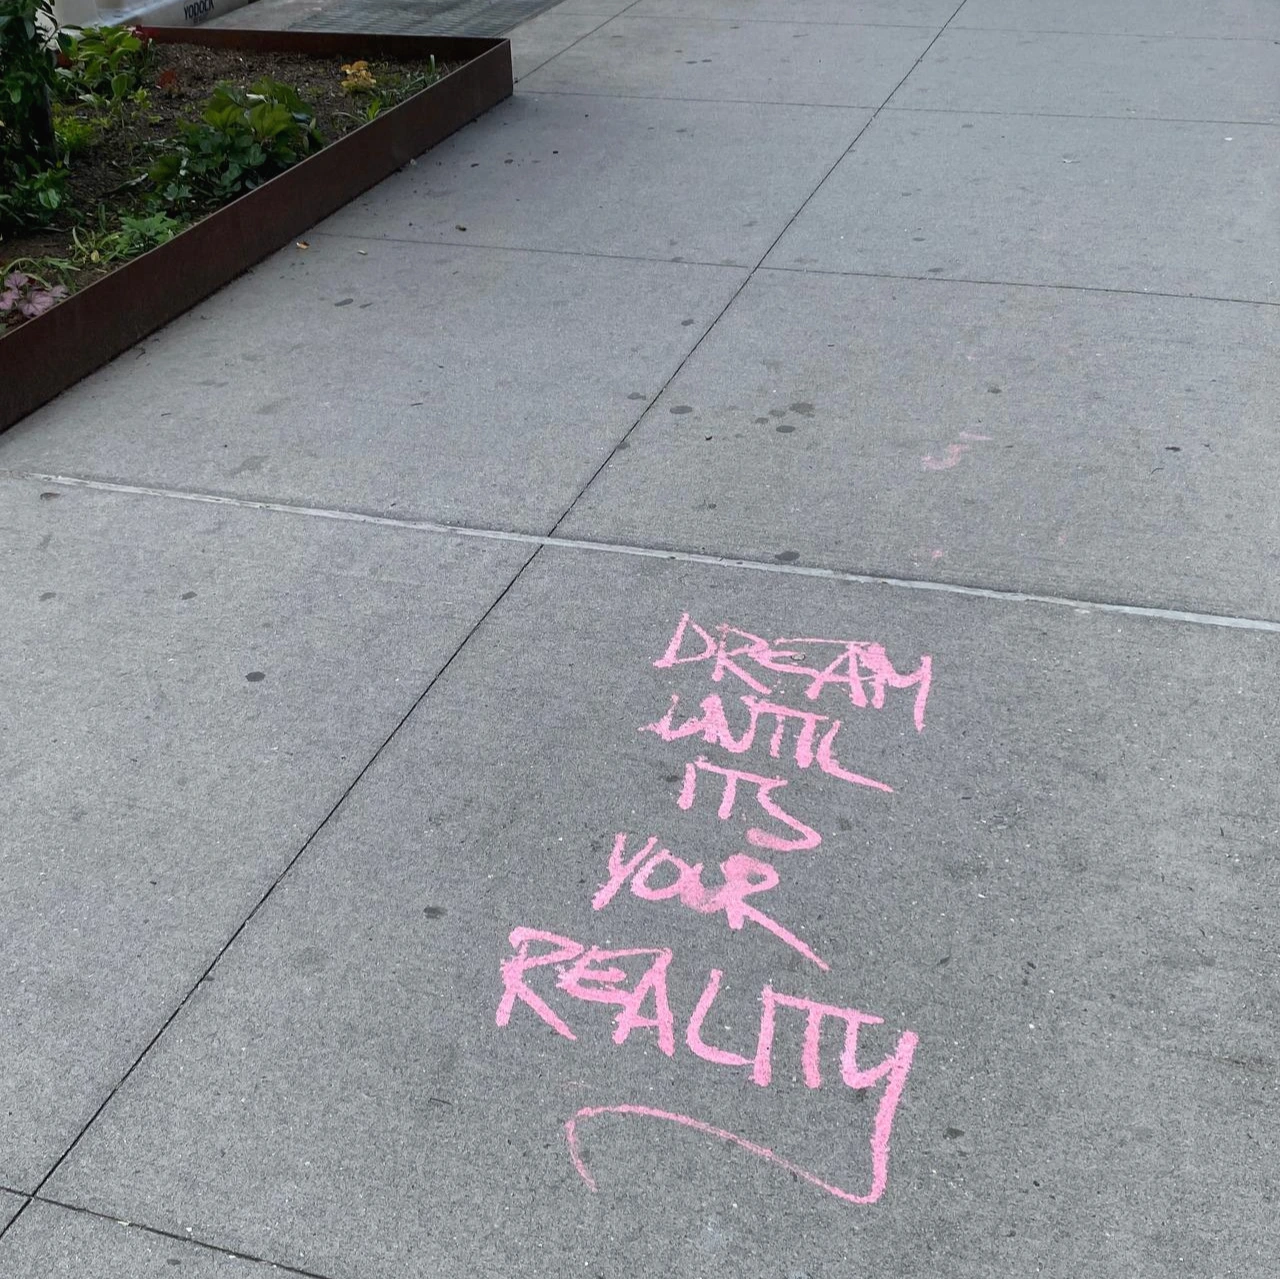 YODOCK
DREAM
UNTIL
ITS
YOUR
REALITY